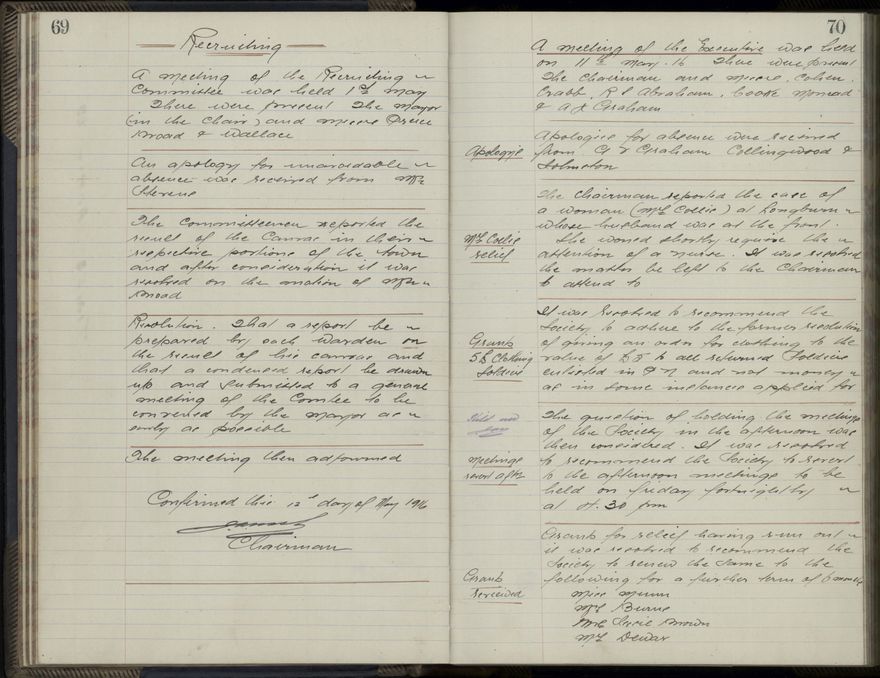 69
Recruiting
A meeting of the Recruiting
Committee was held 1st May
There were present The Mayor
(in the Chair) and Messrs
Broad & Wallace
An apology for unavoidable
absence was received from Mr
Stevens
The Committeemen reported the
result of the Canvas in their
respective portions of the town
and after consideration it was
resolved on the motion of Mr
Broad
Resolution. That a report be
prepared by each Warden on
the result of his canvas and
that a condensed report be drawn
up and submitted to a general
meeting of the Comtee to be
convened by the Mayor as
early as possible
The meeting then adjourned
Confirmed this 12th day of May 1916
Chairman
70
A meeting of the Executive was held
on 11th May. 16 There were present
The Chairman and Messrs. Cohen.
Crabb. R S Abraham. Cooke
& A J Graham
Apologies
Apologies for absence were received
from Graham Collingwood &
Johnston
Mrs Collie
relief
The Chairman reported the case of
a woman (Mrs Collie) at Longburn
whose husband was at the front.
She would shortly require the
attention of a nurse. It was resolved
the matter be left to the Chairman
to attend to
Grants
5£ Clothing
Soldiers
It was resolved to recommend the
Society to adhere to the former resolution
of giving an order for clothing to the
value of £5 to all returned Soldiers
enlisted in P N and not money
as in some instances applied for
Meetings
revert after
The question of holding the meetings
of the Society in the afternoon was
then considered. It was resolved
to recommend the Society to revert
to the afternoon meetings to be
held on friday fortnightly
at 4.30 pm
Grants
renewed
Grants for relief having run out
it was resolved to recommend the
Society to renew the same to the
following for a further term of 6 months
Miss Munn
Mrs Burns
Brown
Mrs Dewar